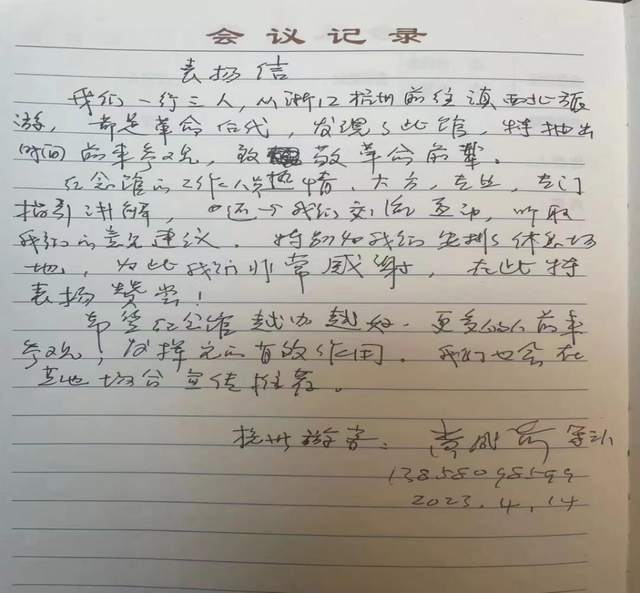 会议记录
表扬信
我们一行三人，从浙江杭州前往滇西北旅
游，都是革命后代，发现了此馆，特抽出
时间前来参观，致敬革命前辈。
纪念馆的工作人员热情、大方，专业，专门
指引讲解，还与我们交流互动，听取
我们的意见建议。特别为我们安排了休息场
地，为此我们非常感谢，在此特
表扬赞赏！
希望纪念馆越办越好，更多的人前来
参观，发挥它的有效作用。我们也会在
其他场合宣传推荐。
杭州游客：
13858098599
2023.4.14